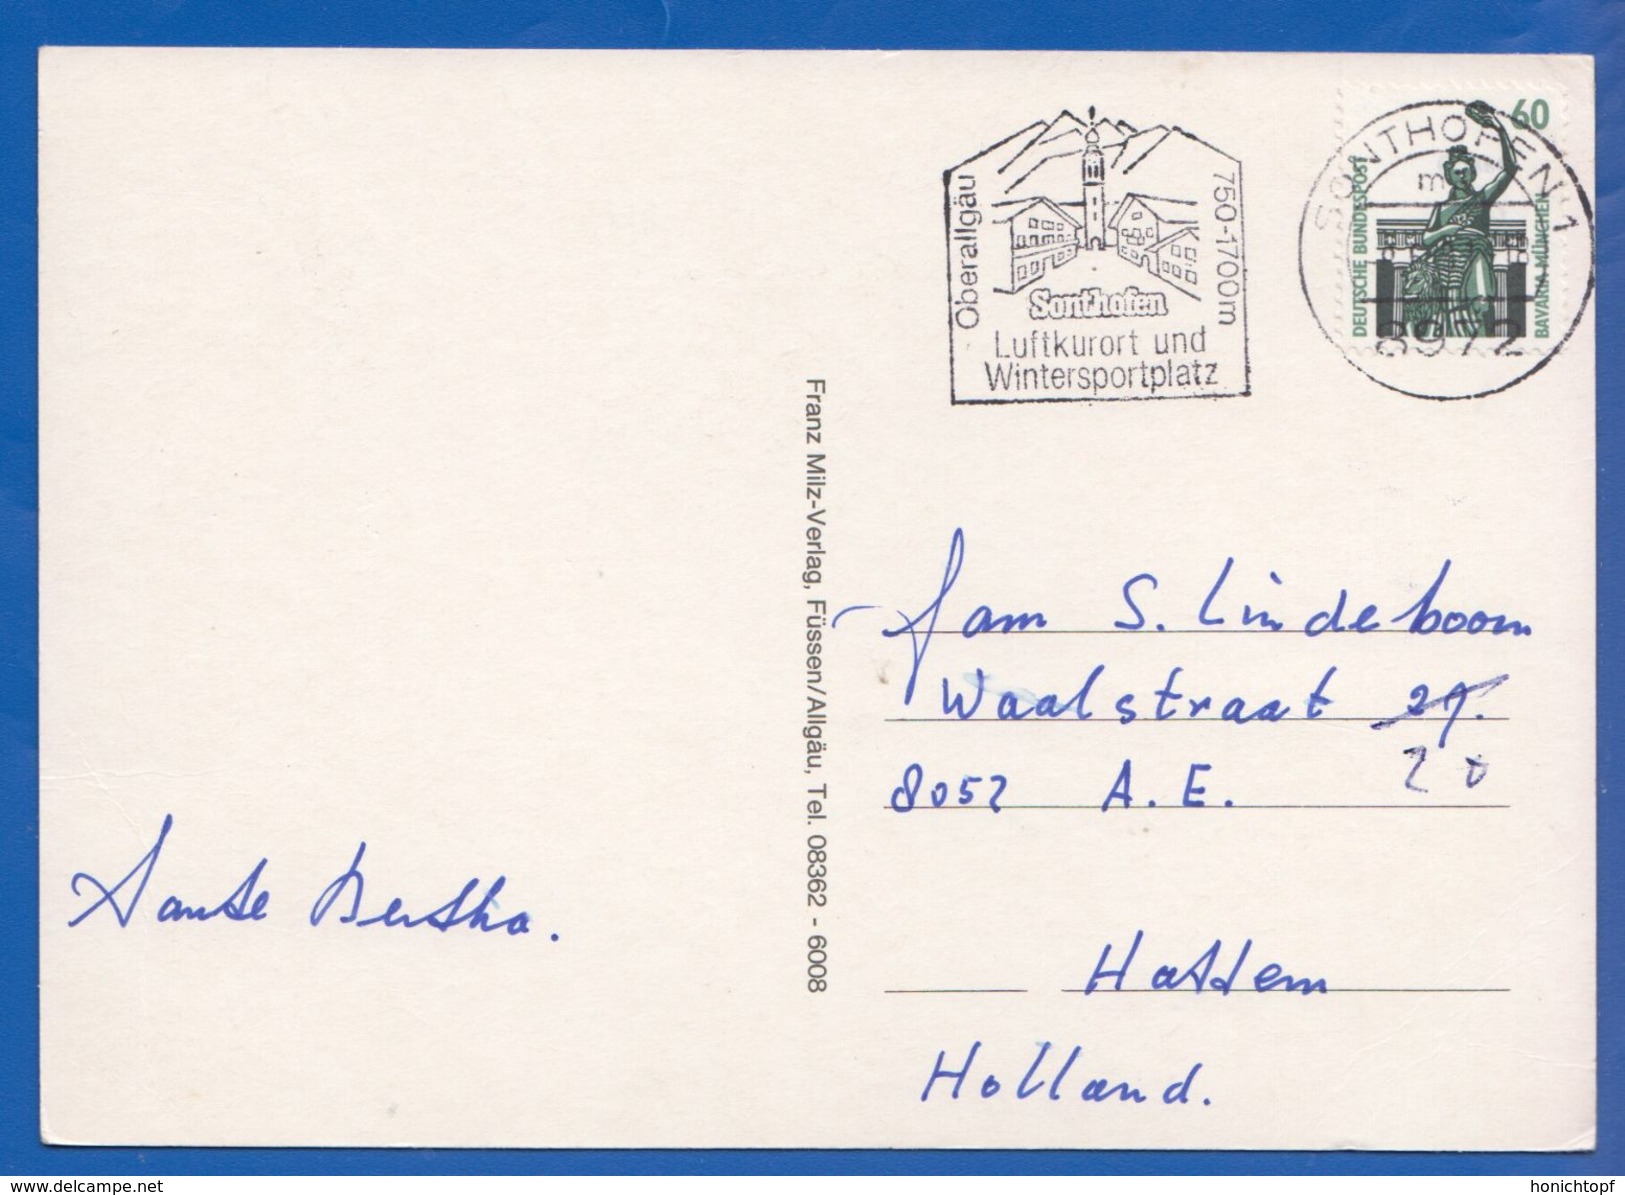 60
DEUTSCHE BUNDESPOST
BAVARIA MÜNCHEN
SONTHOFEN 1
8972
Oberallgäu
750-1700m
Sonthofen
Luftkurort und
Wintersportplatz
Franz Milz-Verlag, Füssen/Allgäu, Tel. 08362 - 6008
Fam S. Lindeboom
Waalstraat 29.
20
8052 A.E.
Hattem
Holland.
Tante Bertha.
www.delcampe.net
honichtopf